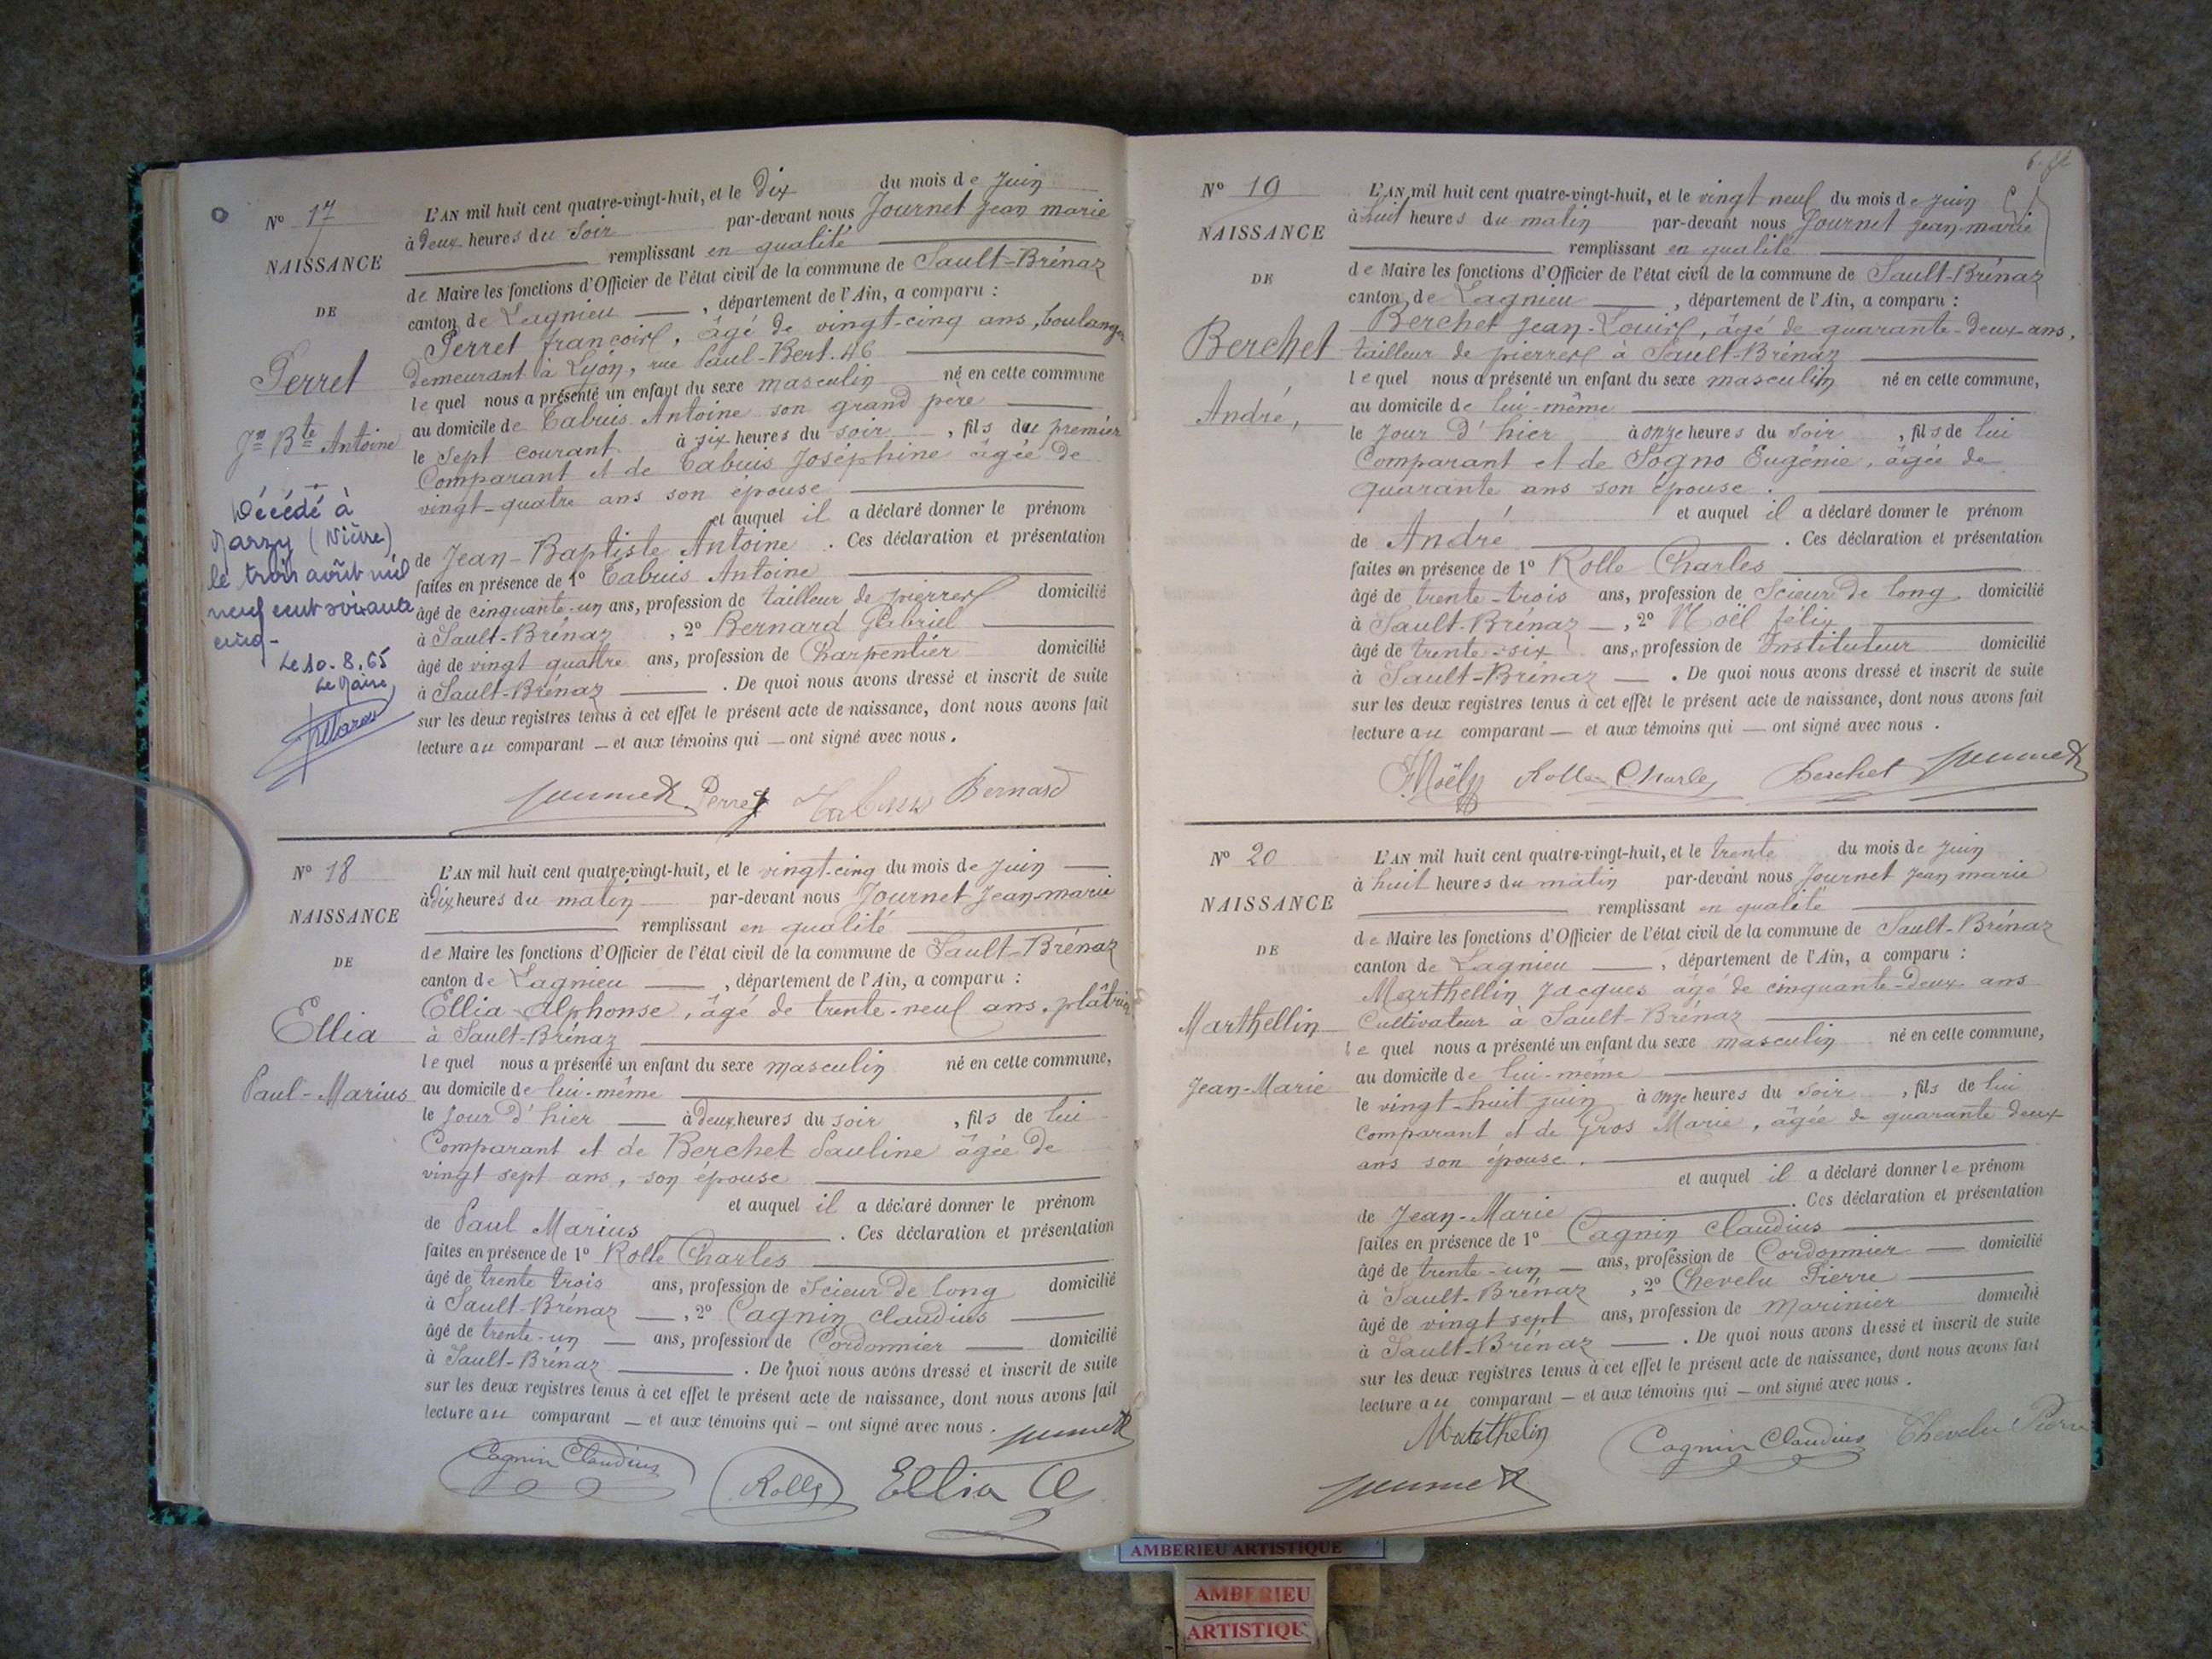 Nº 17
NAISSANCE
DE
Perret
Jn Bte Antoine
Décédé à
Marzy (Nièvre)
le trois août mil
neuf cent soixante
cinq -
Le 10.8.65
Le Maire,
L'AN mil huit cent quatre-vingt-huit, et le dix du mois de juin
à deux heures du soir par-devant nous Journet Jean marie
remplissant en qualité
de Maire les fonctions d'Officier de l'état civil de la commune de Sault-Brénaz
canton de Lagnieu, département de l'Ain, a comparu :
Perret françois, âgé de vingt-cinq ans, boulanger
demeurant à Lyon, rue Paul-Bert. 46
lequel nous a présenté un enfant du sexe masculin né en cette commune
au domicile de Tabuis Antoine son grand père
le sept courant à six heures du soir, fils du premier
Comparant et de Tabuis Joséphine âgée de
vingt-quatre ans son épouse
et auquel il a déclaré donner le prénom
de Jean-Baptiste Antoine. Ces déclaration et présentation
faites en présence de 1º Tabuis Antoine
âgé de cinquante-un ans, profession de tailleur de pierres domicilié
à Sault-Brénaz, 2º Bernard Gabriel
âgé de vingt quattre ans, profession de Charpentier domicilié
à Sault-Brénaz. De quoi nous avons dressé et inscrit de suite
sur les deux registres tenus à cet effet le présent acte de naissance, dont nous avons fait
lecture au comparant — et aux témoins qui — ont signé avec nous.
Journet Perret Tabuis Bernard
Nº 18
NAISSANCE
DE
Ellia
Paul-Marius
L'AN mil huit cent quatre-vingt-huit, et le vingt-cinq du mois de juin
à dix heures du matin par-devant nous Journet Jean-marie
remplissant en qualité
de Maire les fonctions d'Officier de l'état civil de la commune de Sault-Brénaz
canton de Lagnieu, département de l'Ain, a comparu :
Ellia Alphonse, âgé de trente-neuf ans, plâtrier
à Sault-Brénaz
lequel nous a présenté un enfant du sexe masculin né en cette commune,
au domicile de lui-même
le jour d'hier à deux heures du soir, fils de lui
Comparant et de Berchet Pauline âgée de
vingt sept ans, son épouse
et auquel il a déclaré donner le prénom
de Paul Marius. Ces déclaration et présentation
faites en présence de 1º Rolle Charles
âgé de trente trois ans, profession de Scieur de long domicilié
à Sault-Brénaz, 2º Cagnin claudius
âgé de trente-un ans, profession de Cordonnier domicilié
à Sault-Brénaz. De quoi nous avons dressé et inscrit de suite
sur les deux registres tenus à cet effet le présent acte de naissance, dont nous avons fait
lecture au comparant — et aux témoins qui — ont signé avec nous. Journet
Cagnin Claudius Rolle Ellia A
Nº 19
NAISSANCE
DE
Berchet
André,
L'AN mil huit cent quatre-vingt-huit, et le vingt neuf du mois de juin
à huit heures du matin par-devant nous Journet Jean-marie
remplissant en qualité
de Maire les fonctions d'Officier de l'état civil de la commune de Sault-Brénaz
canton de Lagnieu, département de l'Ain, a comparu :
Berchet Jean-Louis, âgé de quarante-deux ans,
tailleur de pierres à Sault-Brénaz
lequel nous a présenté un enfant du sexe masculin né en cette commune,
au domicile de lui-même
le Jour d'hier à onze heures du soir, fils de lui
Comparant et de Sogno Eugénie, âgée de
quarante ans son épouse.
et auquel il a déclaré donner le prénom
de André. Ces déclaration et présentation
faites en présence de 1º Rolle Charles
âgé de trente-trois ans, profession de Scieur de long domicilié
à Sault-Brénaz, 2º Noël félix
âgé de trente-six ans, profession de Instituteur domicilié
à Sault-Brénaz. De quoi nous avons dressé et inscrit de suite
sur les deux registres tenus à cet effet le présent acte de naissance, dont nous avons fait
lecture au comparant — et aux témoins qui — ont signé avec nous.
Rolle Charles Berchet Journet
Nº 20
NAISSANCE
DE
Marthellin
Jean-Marie
L'AN mil huit cent quatre-vingt-huit, et le trente du mois de juin
à huit heures du matin par-devant nous Journet Jean marie
remplissant en qualité
de Maire les fonctions d'Officier de l'état civil de la commune de Sault-Brénaz
canton de Lagnieu, département de l'Ain, a comparu :
Marthellin Jacques âgé de cinquante-deux ans
Cultivateur à Sault-Brénaz
lequel nous a présenté un enfant du sexe masculin né en cette commune,
au domicile de lui-même
le vingt-huit juin à onze heures du soir, fils de lui
Comparant et de Gros Marie, âgée de quarante deux
ans son épouse.
et auquel il a déclaré donner le prénom
de Jean-Marie. Ces déclaration et présentation
faites en présence de 1º Cagnin Claudius
âgé de trente-un ans, profession de Cordonnier domicilié
à Sault-Brénaz, 2º Chevelu Pierre
âgé de vingt sept ans, profession de marinier domicilié
à Sault-Brénaz. De quoi nous avons dressé et inscrit de suite
sur les deux registres tenus à cet effet le présent acte de naissance, dont nous avons fait
lecture au comparant — et aux témoins qui — ont signé avec nous.
Matthelin Cagnin Claudius Chevelu Pierre
Journet
AMBERIEU ARTISTIQUE
AMBERIEU
ARTISTIQU